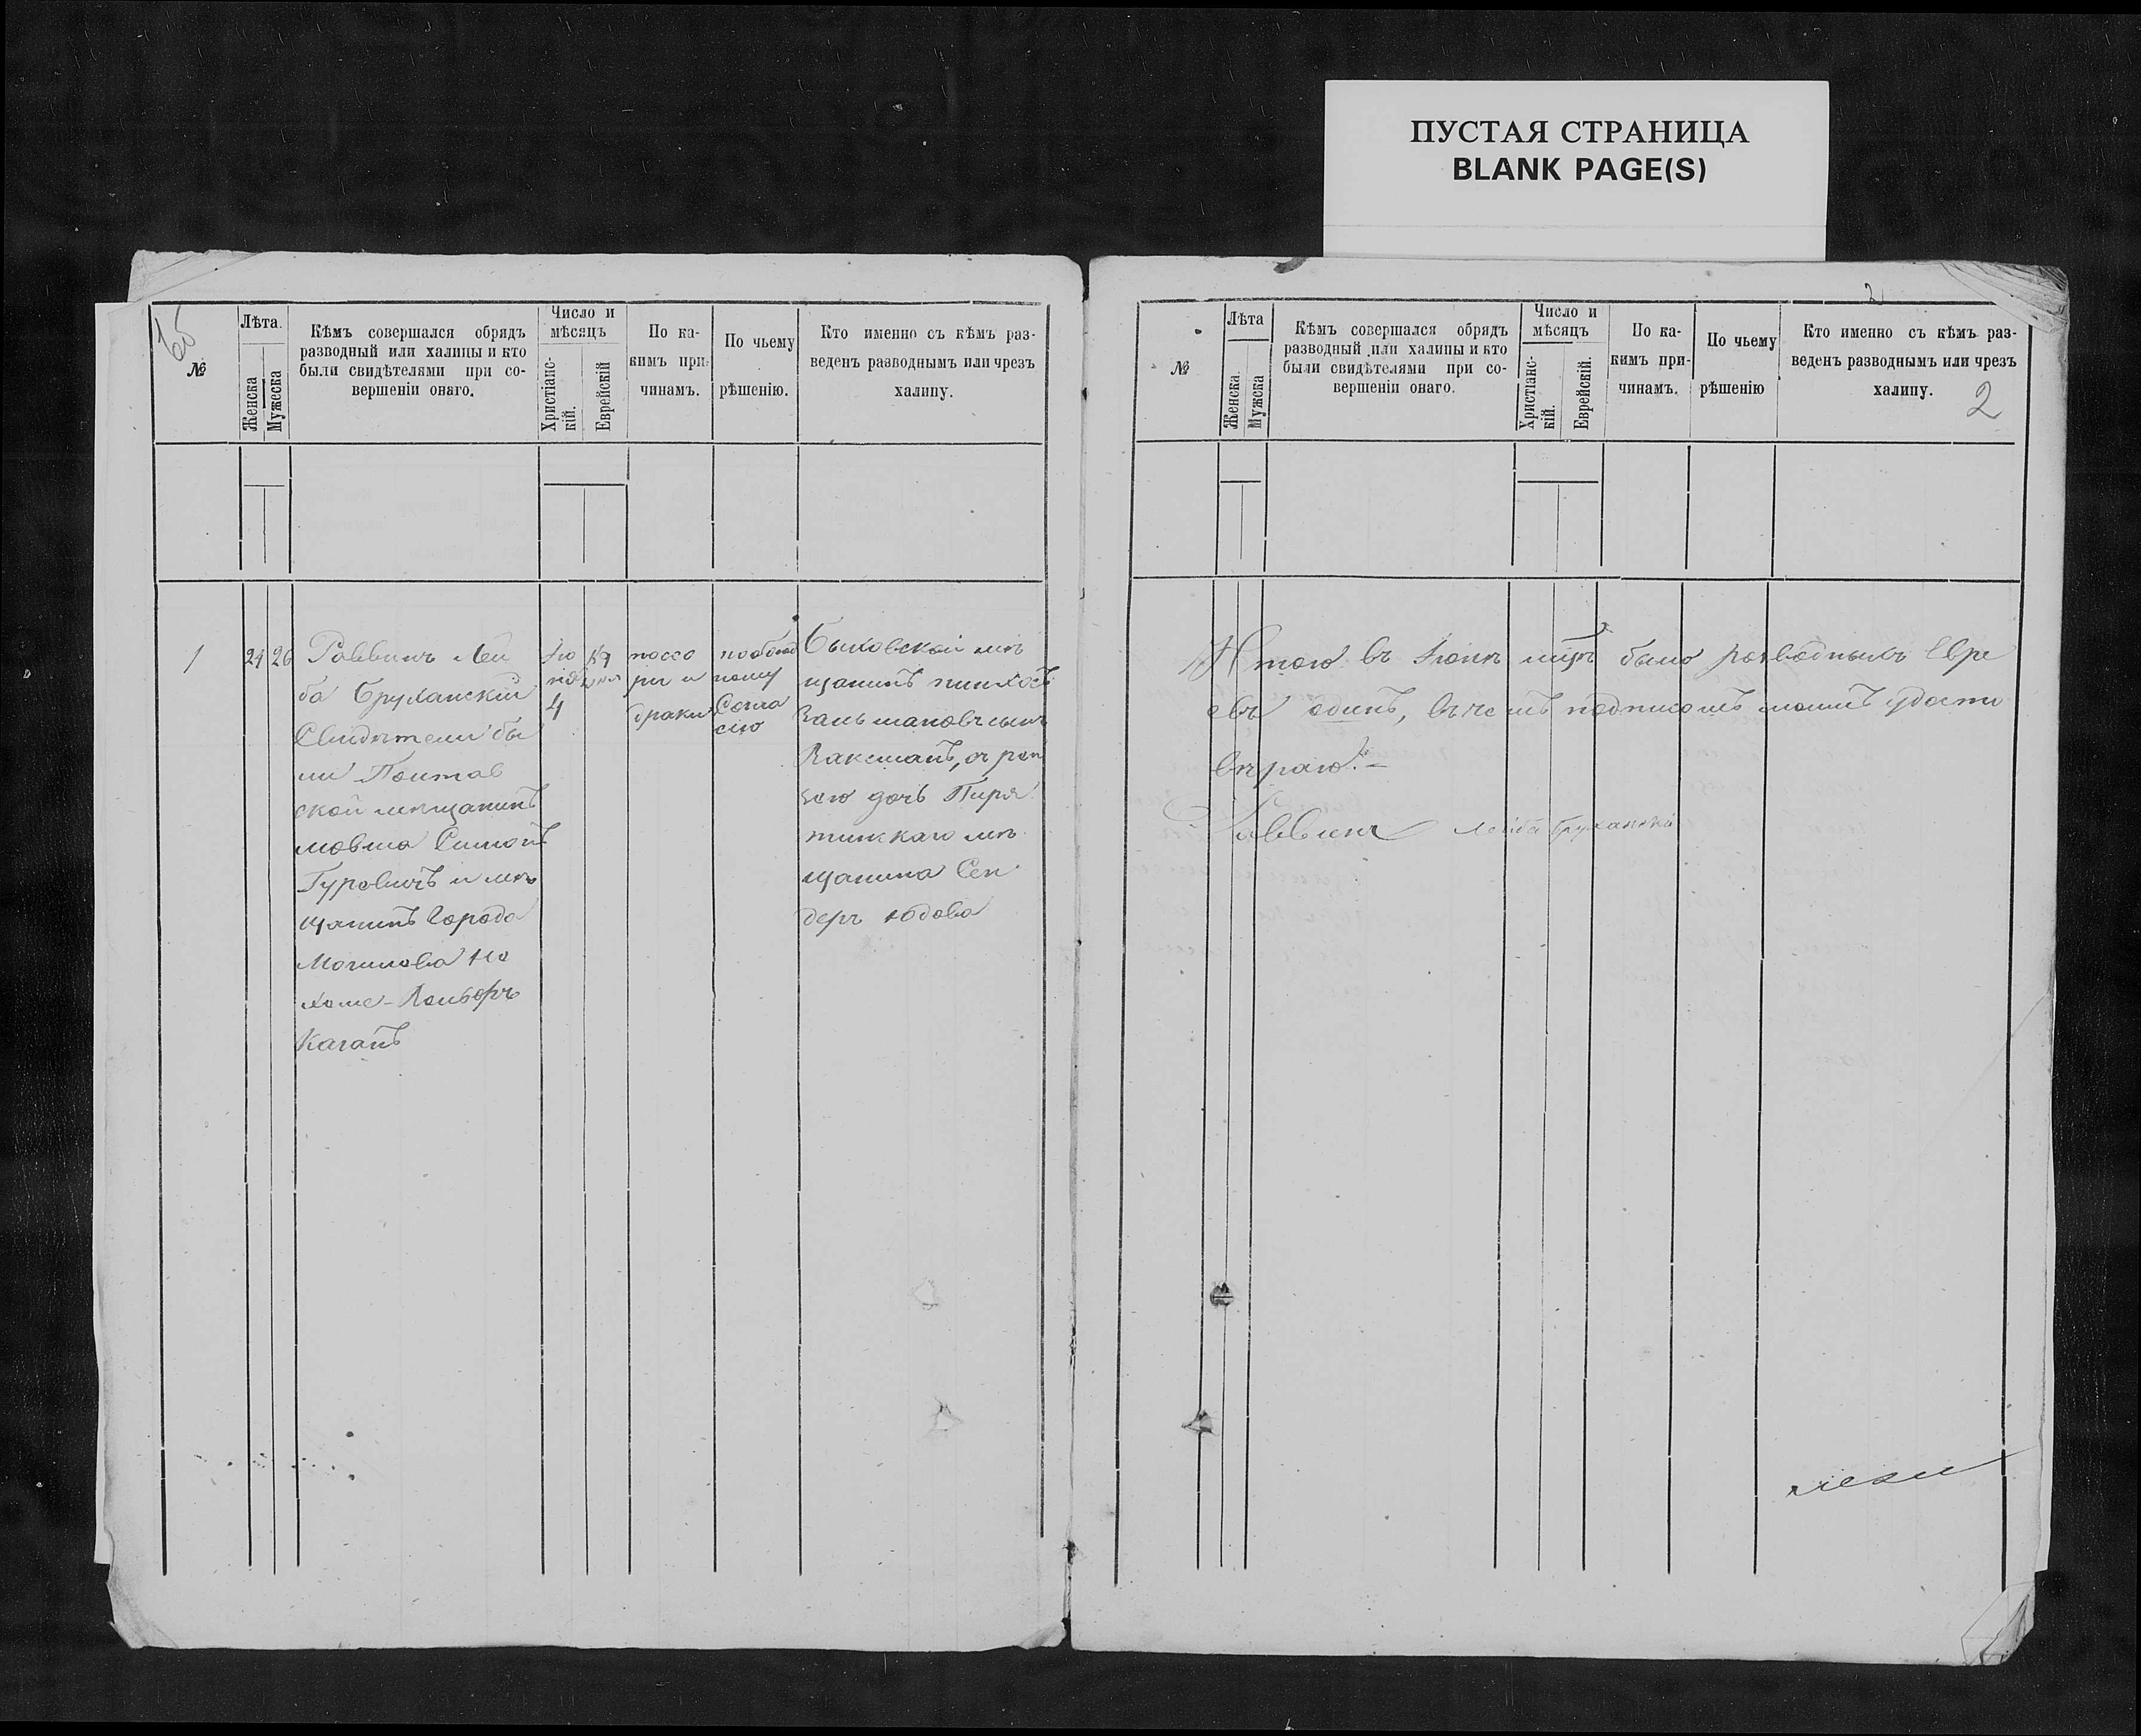 ПУСТАЯ СТРАНИЦА
BLANK PAGE(S)
№
Лѣта.
Женска
Мужеска
Кѣмъ совершался обрядъ
разводный или халицы и кто
были свидѣтелями при со-
вершеніи онаго.
Число и
мѣсяцъ
Христіанс-
кій.
Еврейскій
По ка-
кимъ при-
чинамъ.
По чьему
рѣшенію.
Кто именно съ кѣмъ раз-
веденъ разводнымъ или чрезъ
халицу.
1
26
Раввинъ Лей
ба Бруханскій
Свидѣтели бы
ли Полтав
ской мѣщанинъ
Гуревичъ и мѣ
щанинъ города
Могилева
Каганъ
4
поссо
ры и
драки
по обоюд
ному
Согла
сію
Быховской мѣ
щанинъ Пинхосъ
Залмановъ сынъ
Ваксманъ, съ
дочь Пиря
тинскаго мѣ
щанина Сен
деръ Юдова
2
№
Лѣта
Женска.
Мужска
Кѣмъ совершался обрядъ
разводный или халицы и кто
были свидѣтелями при со-
вершеніи онаго.
Число и
мѣсяцъ
Христіанс-
кій.
Еврейскій.
По ка-
кимъ при-
чинамъ.
По чьему
рѣшенію
Кто именно съ кѣмъ раз-
веденъ разводнымъ или чрезъ
халицу.
2
Итого въ Іюнѣ было разводныхъ Евре
евъ одинъ, въ чемъ подписомъ моимъ удосто
вѣраю.
Раввинъ Лейба Бруханскій